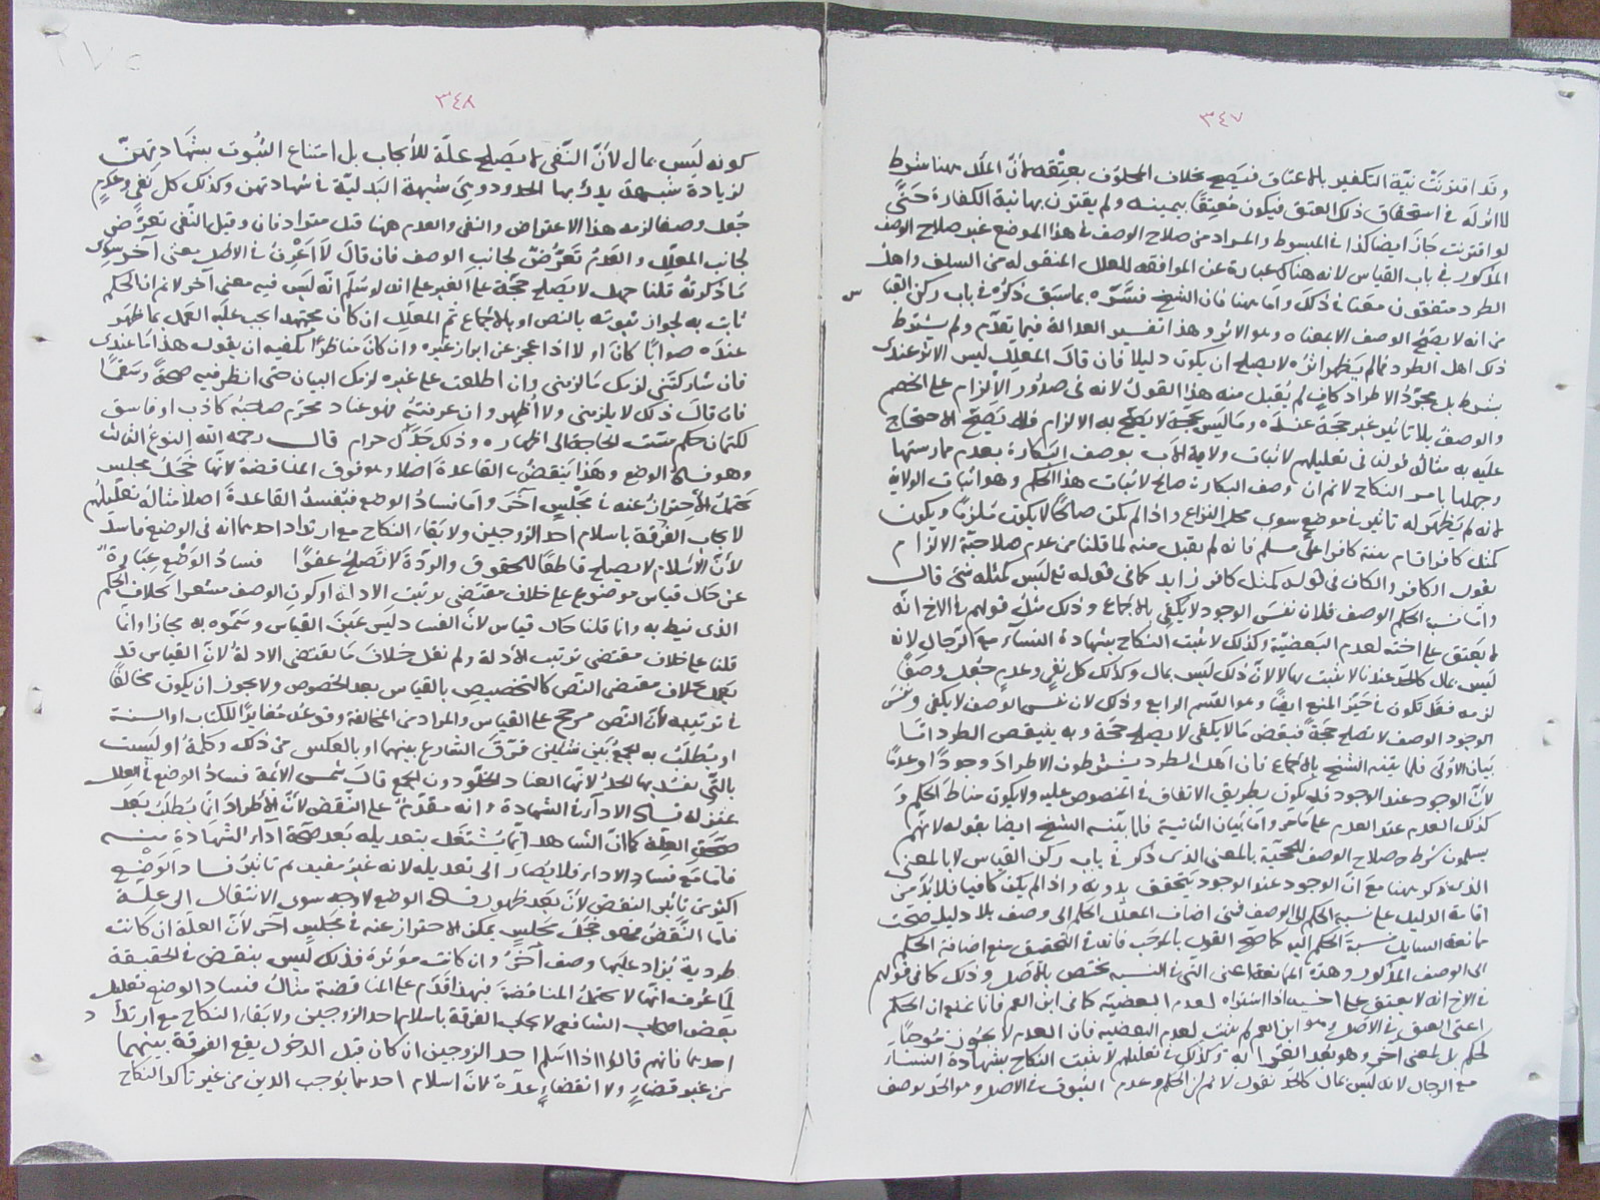 ٣٤٧
وقد اقترنت نية التكفير بالاعتاق فيصح بخلاف المحلوف بعتقه لأن الملك مهنا شرط
لا اثر له في استحقاق ذلك العتق فيكون معتقا بيمينه ولم يقترن بها نية الكفارة حتى
لو اقترنت جاز ايضا كذا في المبسوط والمراد من صلاح الوصف في هذا الموضع غير صلاح الوصف
المذكور في باب القياس لانه هناك عبارة عن الموافقة للعلل المنقولة من السلف واهل
الطرد متفقون معنا في ذلك واما مهنا فان الشيخ فسره بما سبق ذكره في باب ركن القياس
من انه لا يصح الوصف الا بمعناه وهو الاثر وهذا تفسير العدالة فيما تقدم ولم يشترط
ذلك اهل الطرد فما لم يظهر اثره لا يصلح ان يكون دليلا فان قال المعلل ليس الاثر عندى
بشرط بل مجرد الاطراد كاف لم يقبل منه هذا القول لانه في صدور الالزام على الخصم
والوصف بلا تاثير غير حجة عنده وما ليس بحجة لا يصح به الالزام فلا يصح الاحتجاج
عليه به مثاله قولنا في تعليلهم لاثبات ولاية الاب بوصف البكارة بعدم ممارستها
وجهلها بامر النكاح لا نم ان وصف البكارة صالح لاثبات هذا الحكم وهو اثبات الولاية
لانه لم يظهر له تاثير في موضع سوى محل النزاع واذا لم يكن صالحا لا يكون ملزما ويكون
كمثل كافر اقام بينة كافرا على مسلم فانه لم يقبل منه لما قلنا من عدم صلاحية الالزام
بقول الكافر والكاف في قوله كمثل كافر زايد كما في قوله تع ليس كمثله شئ قال
واما نسبة الحكم الوصف فلان نفس الوجود لا يكفى بالاجماع وذلك مثل قولهم في الاخ انه
لا يعتق على اخته لعدم البعضية وكذلك لا يثبت النكاح بشهادة النساء مع الرجال لانه
ليس بمال كالحد عندنا لا يثبت بها لا لان ذلك ليس بمال وكذلك كل نفى وعدم جعل وصفا
لزمه فقد تكون في حيز المنع ايضا وهو القسم الرابع وذلك لان نفس الوصف لا يكفى ونفس
الوجود الوصف لا تصلح حجة فبعض ما لا يكفى لا يصلح حجة وبه ينتقض الطرد اما
بيان الاولى فلما بينه الشيخ بالاجماع فان اهل الطرد يشترطون الاطراد وجودا وعدما
لان الوجود عند الوجود قد يكون بطريق الاتفاق في المنصوص عليه ولا يكون مناط الحكم و
كذلك العدم عند العدم على ما مر واما بيان الثانية فلما بينه الشيخ ايضا بقوله لانهم
يسلمون شرط صلاح الوصف للحجية بالمعنى الذى ذكر في باب ركن القياس لا بالمعنى
الذى ذكر مهنا مع ان الوجود عند الوجود يتحقق بدونه واذا لم يكن كافيا فلا بد من
اقامة الدليل على نسبة الحكم الى الوصف فمتى اضاف المعلل الحكم الى وصف بلا دليل صحت
ممانعة السايل نسبة الحكم اليه كما صح القول بالموجب فانه في التحقيق منع اضافة الحكم
الى الوصف المذكور وهذه الممانعة اعنى التي في النسبة تختص بالاصل وذلك كما في قولهم
في الاخ انه لا يعتق على اخيه اذا اشتراه لعدم البعضية كما في ابن العم فانا نمنع ان الحكم
اعنى العتق في الاصل وهو ابن العم لم يثبت لعدم البعضية فان العدم لا يجوز موجبا
لحكم بل لمعنى آخر وهو بعد القرابة وكذلك في تعليلهم لا يثبت النكاح بشهادة النساء
مع الرجال لانه ليس بمال كالحد نقول لا نم ان الحكم وعدم الثبوت في الاصل وهو الحد بوصف
٣٤٨
كونه ليس بمال لأن النفى لا يصلح علة للأيجاب بل امتناع الثبوت بشهادتهن
لزيادة شبهة يدرء بها الحدود وهي شبهة البدلية في شهادتهن وكذلك كل نفي وعدم
جعل وصفا لزمه هذا الاعتراض والنفى والعدم ههنا قيل مترادفان وقيل النفى تعرض
لجانب المعلل والعدم تعرض لجانب الوصف فان قال لا اعرف في الاصل معنى آخر سوى
ما ذكرته قلنا جهلك لا يصلح حجة على الغير على انه لو سلم انه ليس فيه معنى آخر لا نم ان الحكم
ثابت به لجواز ثبوته بالنص او بالاجماع ثم المعلل ان كان مجتهدا يجب عليه العمل بما ظهر
عنده صوابا كان او لا اذا عجز عن ابراز غيره وان كان مناظرا يكفيه ان يقول هذا ما عندى
فان شاركتنى لزمك ما لزمنى وان اطلعت على غيره لزمك البيان حتى انظر فيه صحة وسقما
فان قال ذلك لا يلزمنى ولا أظهر وان عرفته فهو عناد محرم صاحبه كاذب او فاسق
لكتمان حكم مست الحاجة الى اظهاره وذلك جدل حرام قال رحمه الله النوع الثالث
وهو فساد الوضع وهذا ينقض القاعدة اصلا وهو فوق المناقضة لانها خجل مجلس
يحتمل الاحتراز عنه في مجلس آخر واما فساد الوضع فيفسد القاعدة اصلا مثاله تعليلهم
لايجاب الفرقة باسلام احد الزوجين ولابقاء النكاح مع ارتداد احدهما انه في الوضع فاسد
لأن الاسلام لا يصلح قاطعا للحقوق والردة لا تصلح عفوا فساد الوضع عبارة
عن حال قياس موضوع على خلاف مقتضى ترتيب الادلة او كون الوصف مشعرا بخلاف الحكم
الذى نيط به وانما قلنا حال قياس لأن الفساد ليس عين القياس وسموه به مجازا وانما
قلنا على خلاف مقتضى ترتيب الأدلة ولم نقل خلاف ما يقتضى الادلة لان القياس قد
يعد بخلاف مقتضى النص كالتخصيص بالقياس بعد الخصوص ولا يجوز ان يكون مخالفا
في ترتيبه لأن النص مرجح على القياس والمراد من المخالفة وقوعه مغايرا للكتاب او السنة
او يطلب به الجمع بين شيئين فرق الشارع بينهما او بالعكس من ذلك وكلمة او ليست
بالتي يفسد بها الحد لانها لعناد الخلو دون الجمع قال شمس الائمة فساد الوضع في العلل
بمنزلة فساد الاداء في الشهادة وانه مقدم على النقض لأن الأطراد انما يطلب بعد
صحة العلة كما ان الشاهد انما يشتغل بتعديله بعد صحة اداء الشهادة منه
فاما مع فساد الاداء فلا يصار الى تعديله لانه غير مفيد ثم تاثير فساد الوضع
اكثر من تاثير النقض لأن بعد ظهور فساد الوضع لا وجه سوى الانتقال الى علة
فاما النقض فهو خجل مجلس يمكن الاحتراز عنه في مجلس آخر لأن العلة ان كانت
طردية يزاد عليها وصف آخر وان كانت مؤثرة فذلك ليس بنقض في الحقيقة
لما عرف انها لا تحتمل المناقضة فبهذا قدم على المناقضة مثال فساد الوضع تعليل
بعض اصحاب الشافعى لايجاب الفرقة باسلام احد الزوجين ولابقاء النكاح مع ارتداد
احدهما فانهم قالوا اذا اسلم احد الزوجين ان كان قبل الدخول يقع الفرقة بينهما
من غير قضاء ولا انقضاء عدة لان اسلام احدهما يوجب الدين من غير تأكد النكاح